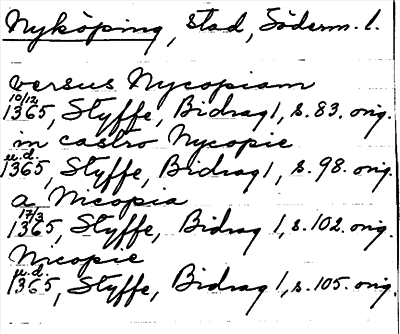 Nyköping, stad, Söderm. l.
versus Nycopiam
10/12
1365, Styffe, Bidrag 1, s. 83. orig.
in castro Nycopie
u.d.
1365, Styffe, Bidrag 1, s. 98. orig.
a Nicopia
17/3
1365, Styffe, Bidrag 1, s. 102. orig.
Nicopie
u.d.
1365, Styffe, Bidrag 1, s. 105. orig.